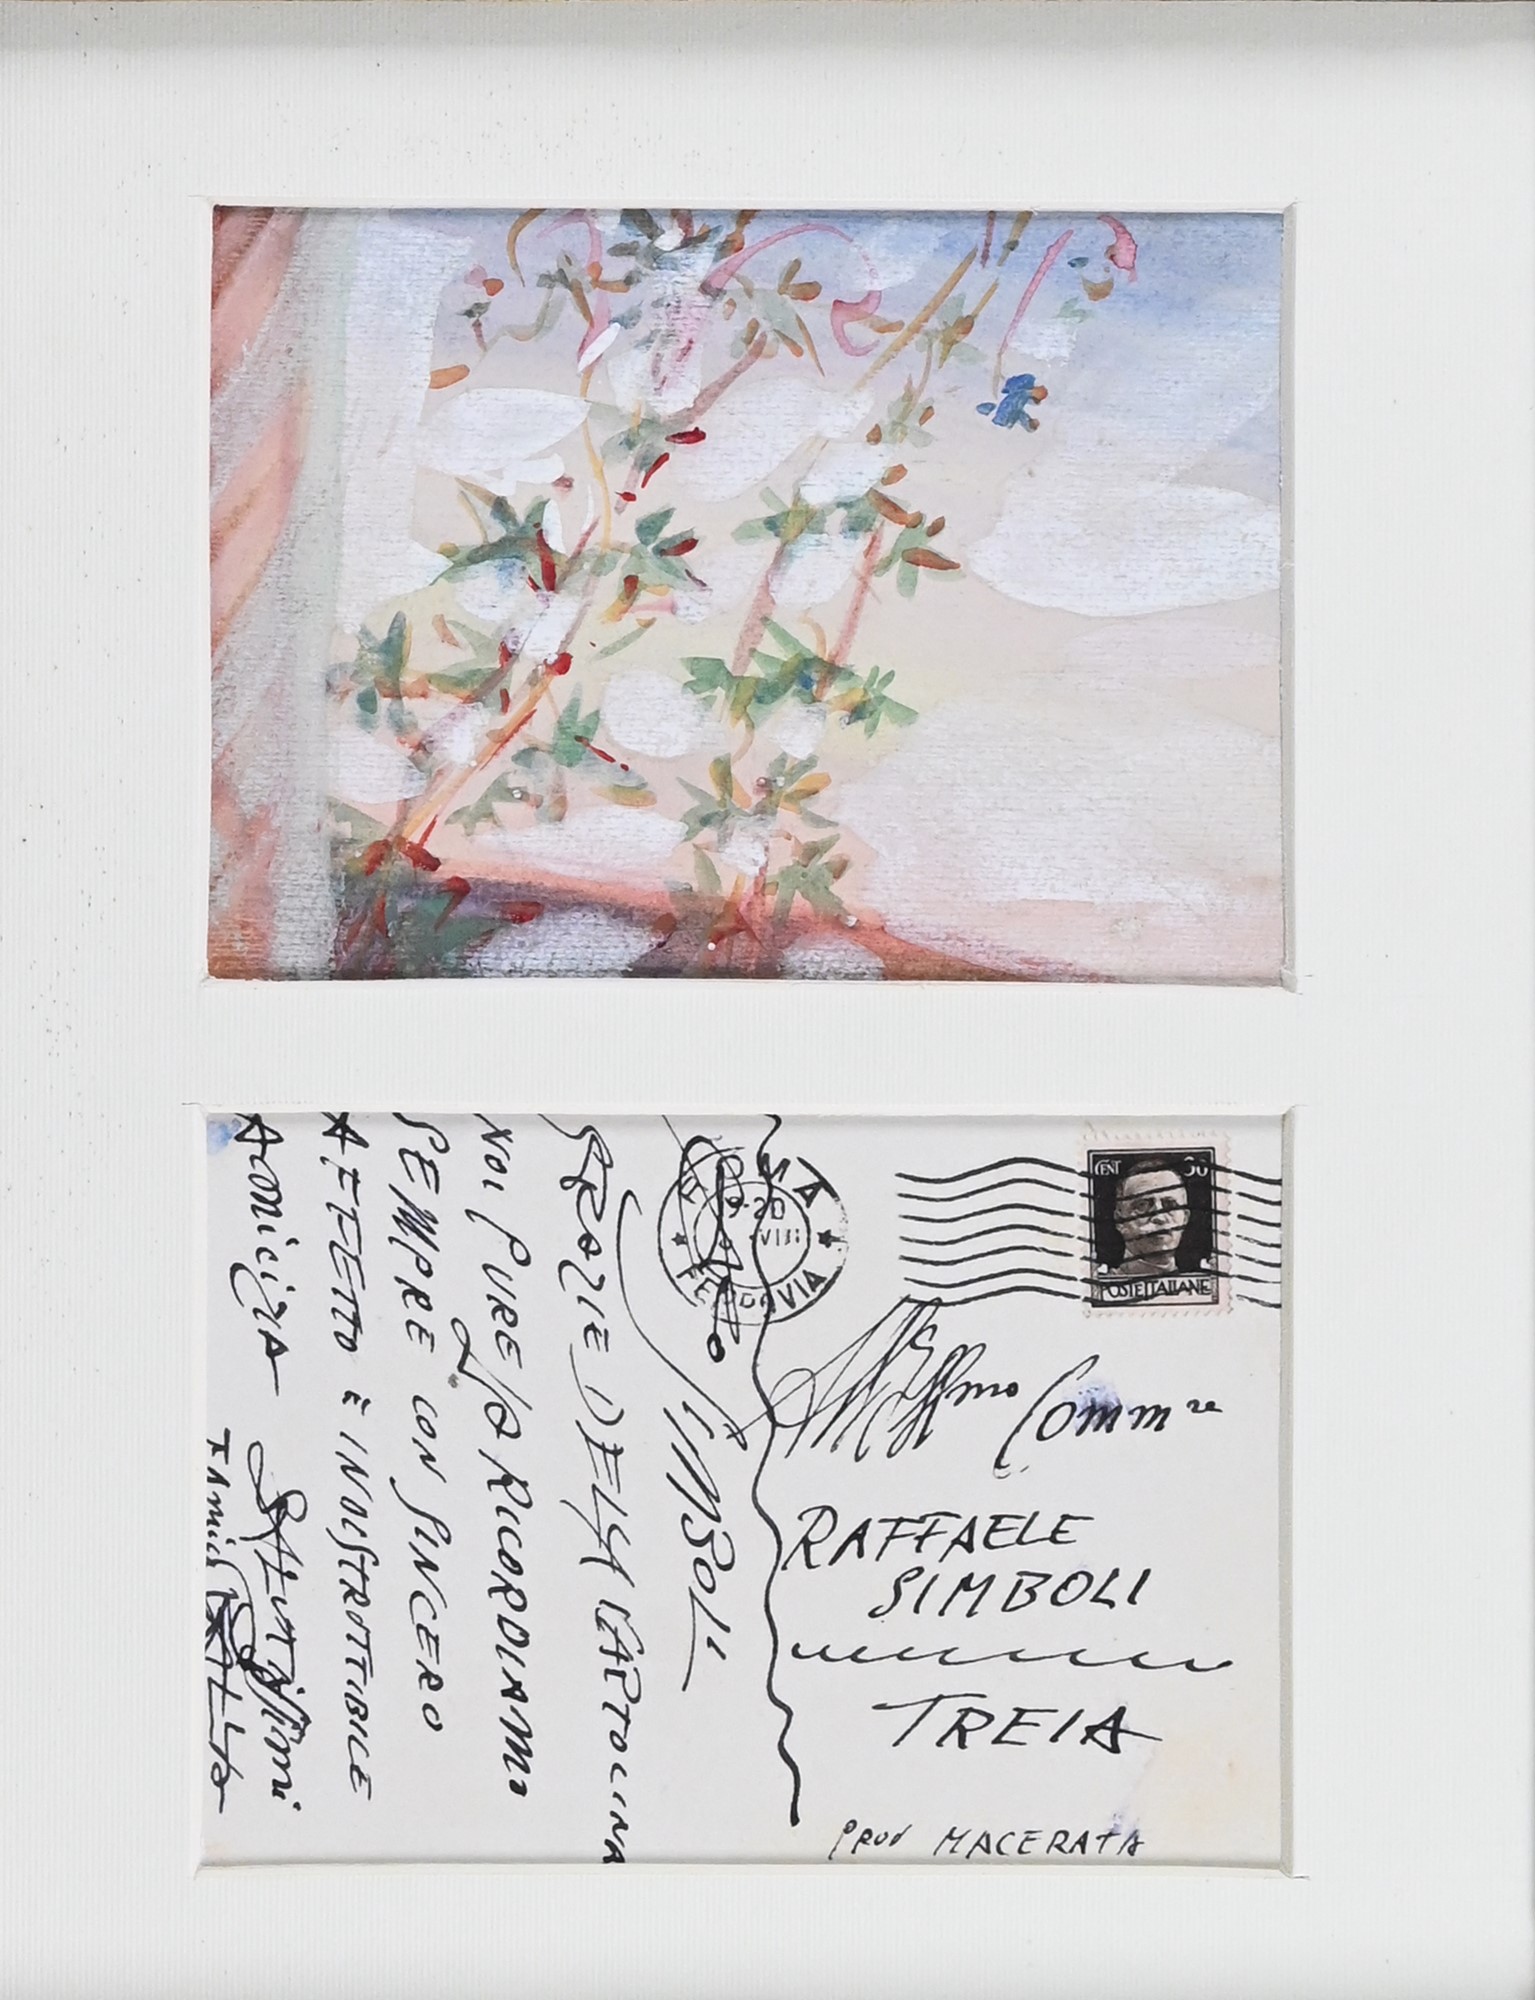 SIMBOLI
GRAZIE DELLA CARTOLINA
NOI PURE LA RICORDIAMO
SEMPRE CON SINCERO
AFFETTO È INDISTRUTTIBILE
AMICIZIA SALUTISSIMI
FAMIGLIA
ROMA
19-20
VIII
FERROVIA
CENT 30
POSTE ITALIANE
Comm re
RAFFAELE
SIMBOLI
TREIA
PROV MACERATA